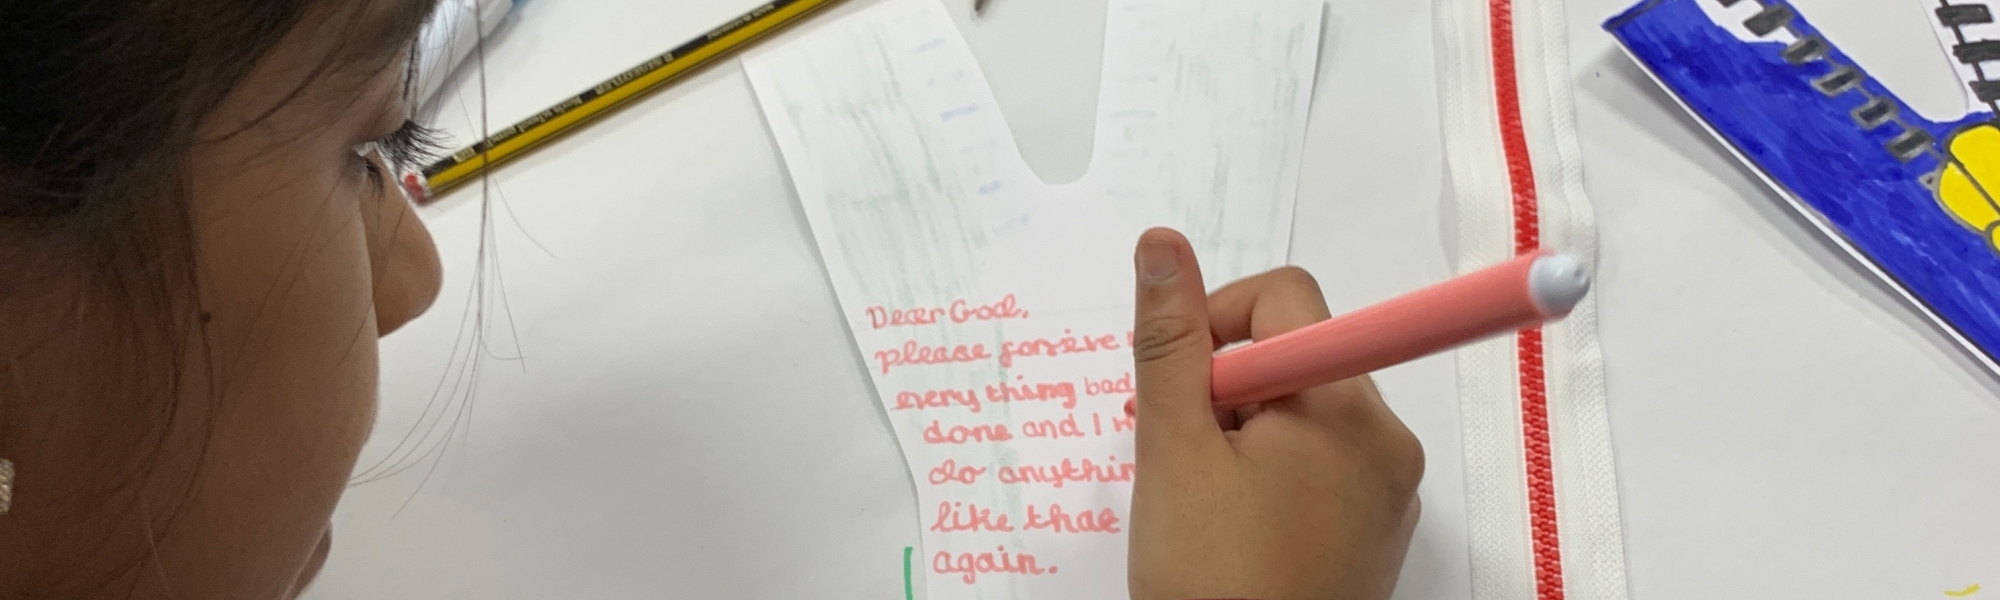 Dear God,
please forgive
every thing bad
done and I
do anythin
like that
again.